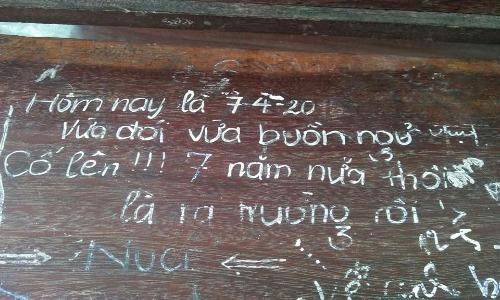 Hôm nay là 7-4-20
Vừa đói vừa buồn ngủ
Cố lên!!! 7 năm nữa thôi
là ra trường rồi
3